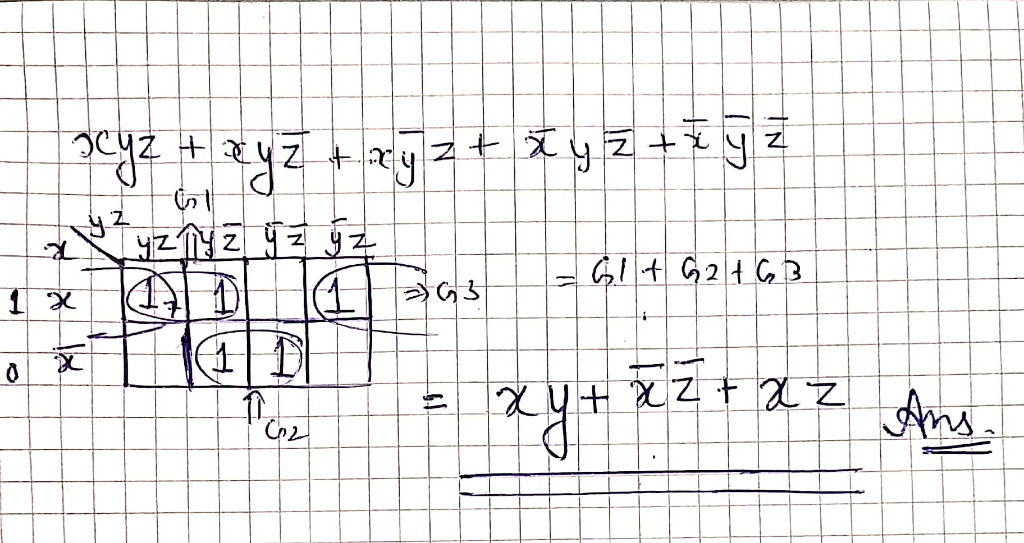 xyz + xyz̅ + xy̅z + x̅yz̅ + x̅y̅z̅
G1
x yz yz yz̅ y̅z̅ y̅z
1 x 1 7 1 1 ⇒ G3 = G1 + G2 + G3
0 x̅ 1 1
⇑ G2
= xy + x̅z̅ + xz Ans.